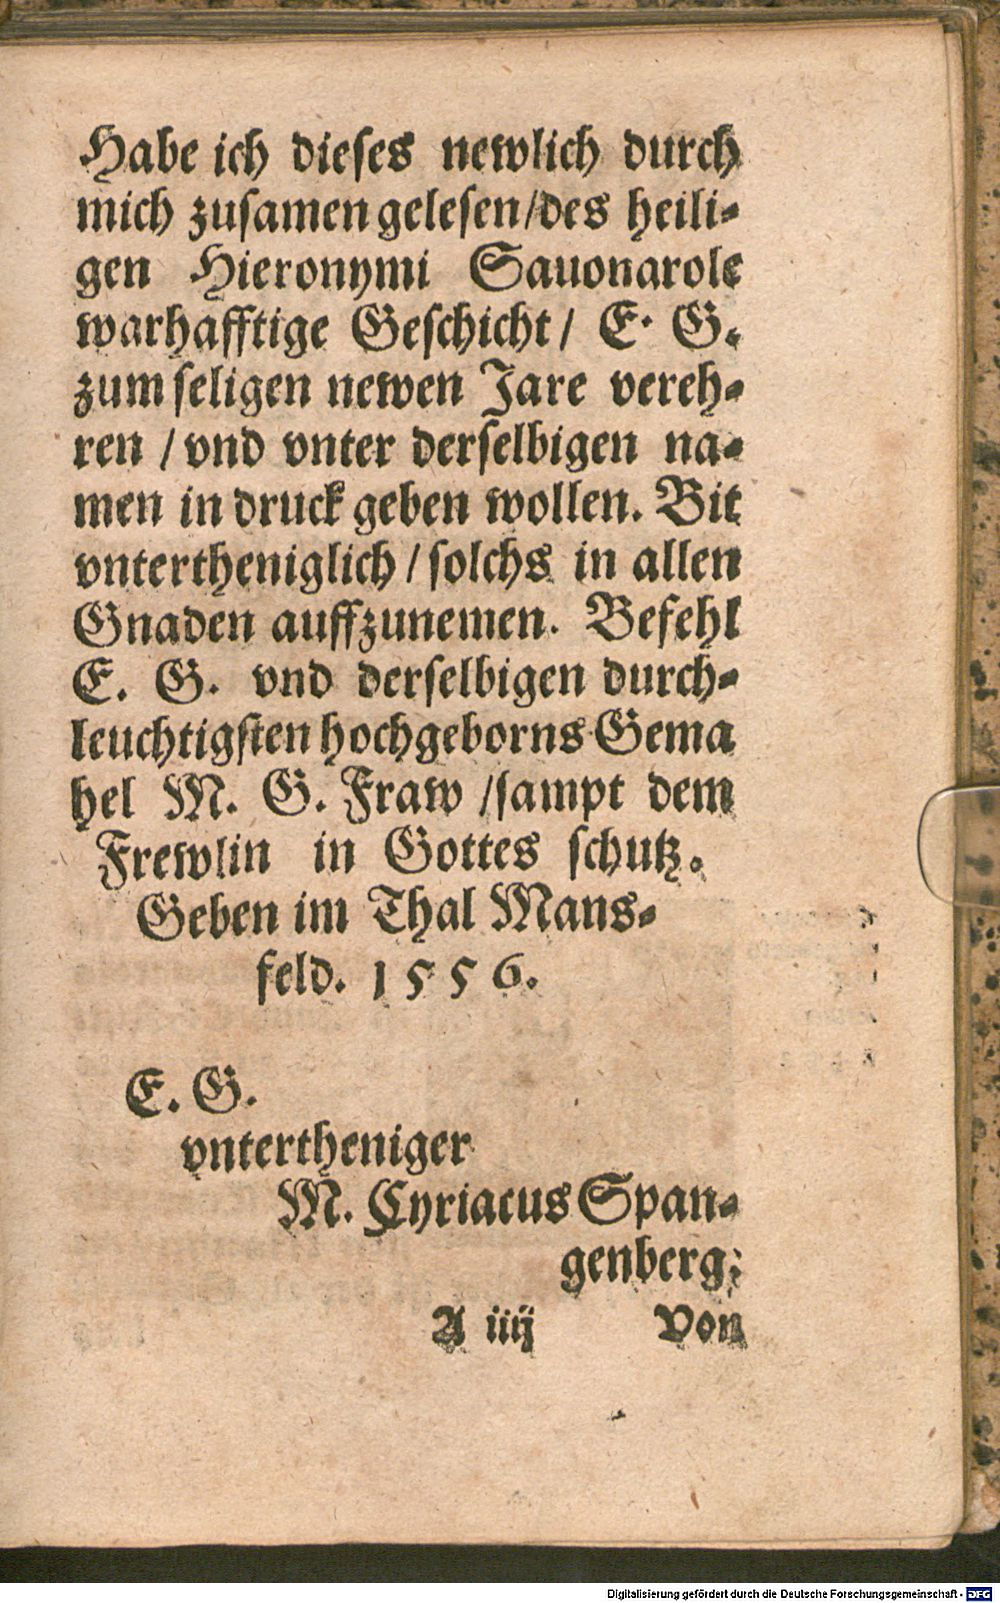 Habe ich dieses newlich durch
mich zusamen gelesen/des heili-
gen Hieronymi Sauonarole
warhafftige Geschicht/ E. G.
zum seligen newen Jare vereh-
ren /vnd vnter derselbigen na-
men in druck geben wollen. Bit
vntertheniglich/solchs in allen
Gnaden auffzunemen. Befehl
E. G. vnd derselbigen durch-
leuchtigsten hochgeborns Gema
hel M. G. Fraw /sampt dem
Frewlin in Gottes schutz.
Geben im Thal Mans-
feld. 1556.
E. G.
vntertheniger
M. Cyriacus Span-
genberg.
A iiij Von
Digitalisierung gefördert durch die Deutsche Forschungsgemeinschaft - DFG